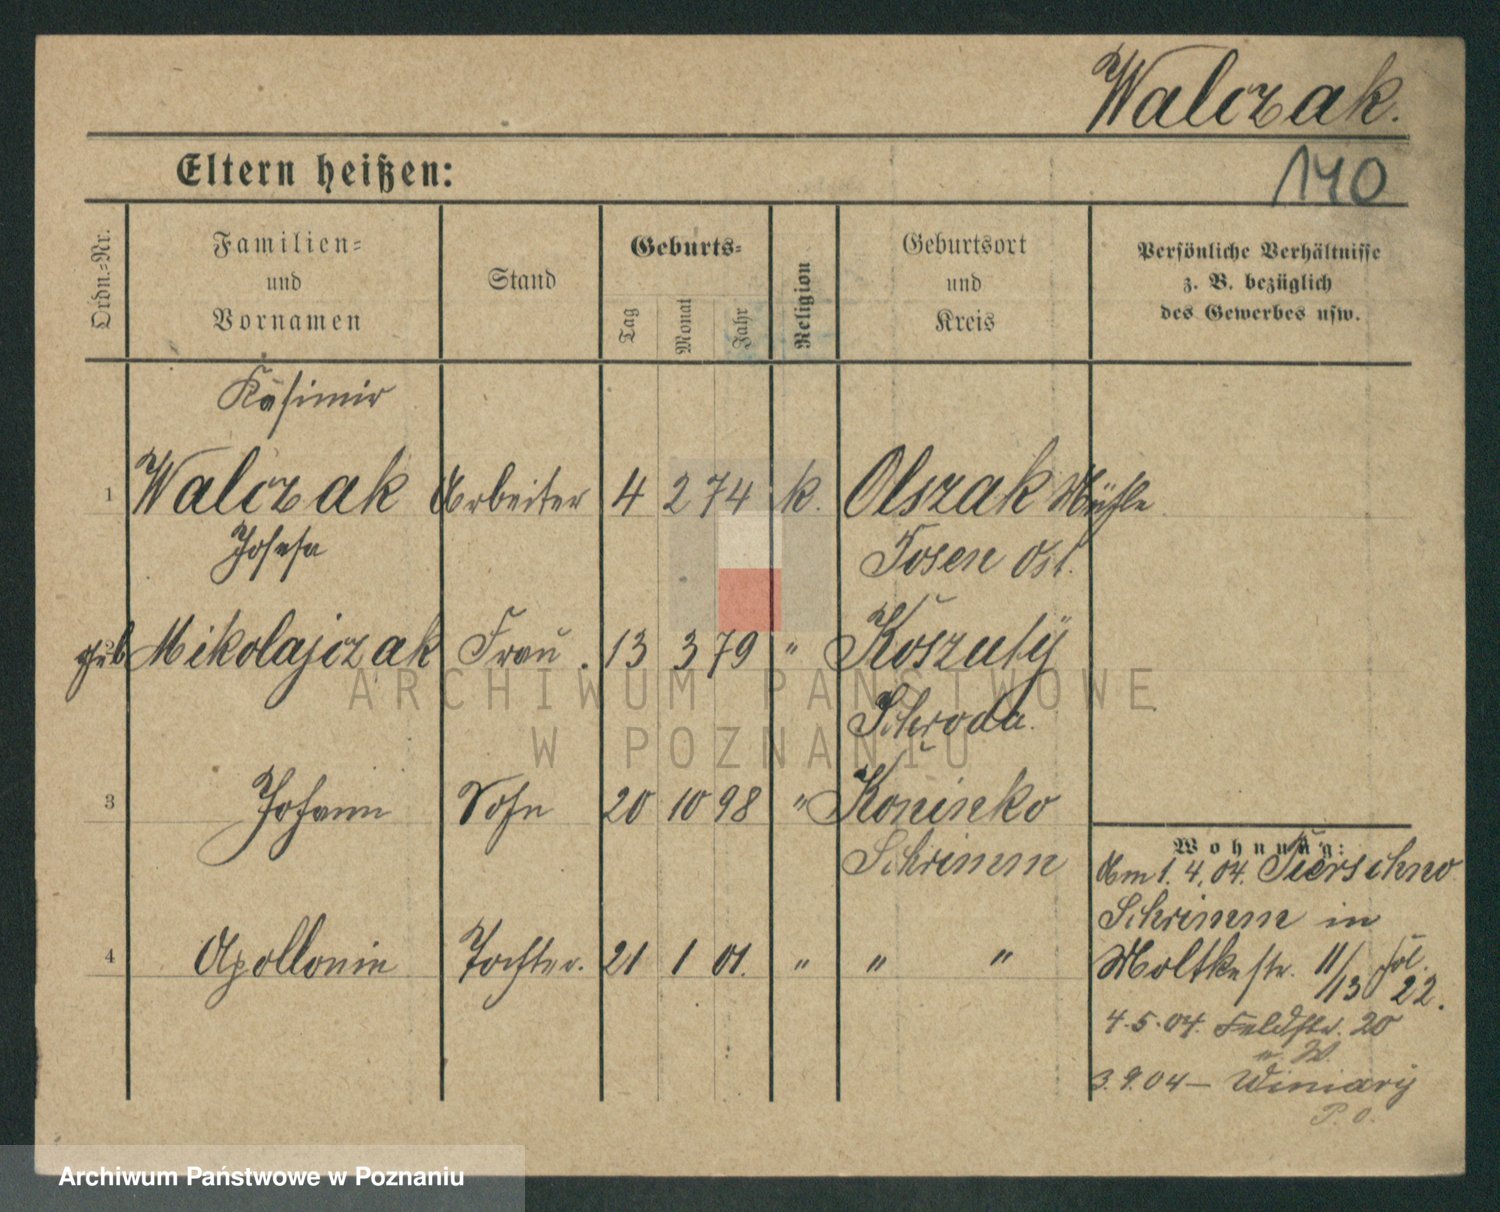 Walczak.
140
Eltern heißen:
Ordn.=Nr.
Familien=
und
Vornamen
Stand
Geburts=
Tag
Monat
Jahr
Religion
Geburtsort
und
Kreis
Persönliche Verhältnisse
z. B. bezüglich
des Gewerbes usw.
Kasimir
1 Walczak Arbeiter 4 2 74 k. Olszak Mühle
Josefa
Posen Ost.
geb Mikolajczak Frau. 13 3 79 " Koszuty
Schroda.
3 Johann Sohn 20 10 98 " Koninko
Schrimm
4 Apollonie Tochter. 21 1 01. " " "
Wohnung:
Am 1. 4. 04. Pierschno
Schrimm in
Moltkestr. 11/13
22.
4.5.04. Feldstr. 20
W.
3.9.04 — Winiary
P. O.
ARCHIWUM PAŃSTWOWE
W POZNANIU
Archiwum Państwowe w Poznaniu